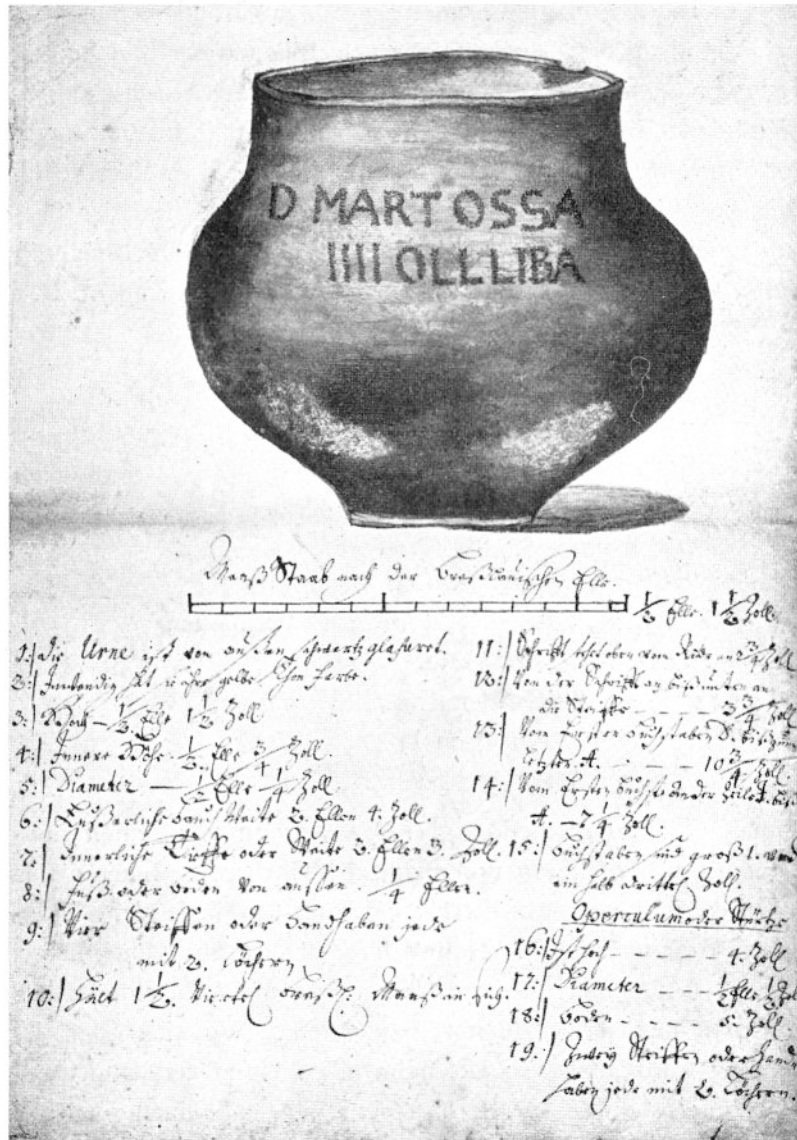 D MART OSSA
IIII OLL LIBA
Maaß Staab nach der Breßlauischen Elle.
½ Elle. 1½ Zoll.
1:| Die Urne ist von außen schwartz glasuret.
2:| Inwendig hat gelbe Farbe.
3:| Hoch — ½ Elle 1½ Zoll
4:| Innere Höhe. ½ Elle ¾ Zoll.
5:| Diameter — ½ Elle ¼ Zoll.
6:| Eüßerliche Bauch Weite 2. Ellen 4. Zoll.
7:| Innerliche Tieffe oder Weite 2. Ellen 3. Zoll.
8:| Fuß oder Boden von aussen. ¼ Ellen.
9:| Vier Steiffen oder Handhaben jede
mit 2. Löchern
10:| Hält 1½ Viertel Breßl: Maaß in sich.
11:| Schrifft stehet oben vom Rande an 2¾ Zoll
12:| Von der Schrifft an biß unten an
die Steiffe - - - - 3¾ Zoll
13:| Vom Ersten Buchstaben D. biß zum
letzten A. - - - 10¾ Zoll
14:| Vom Ersten Buchst: ander Zeile biß
A. — 7¼ Zoll.
15:| Buchstaben sind groß 1. und
ein halb drittel Zoll.
Operculum oder Stürtze
16:| Ist hoch - - - - - 4. Zoll
17:| Diameter - - - ½ Elle ½ Zoll
18:| Boden - - - - 5. Zoll
19:| Zwey Steiffen oder Hand
haben jede mit 2. Löchern.